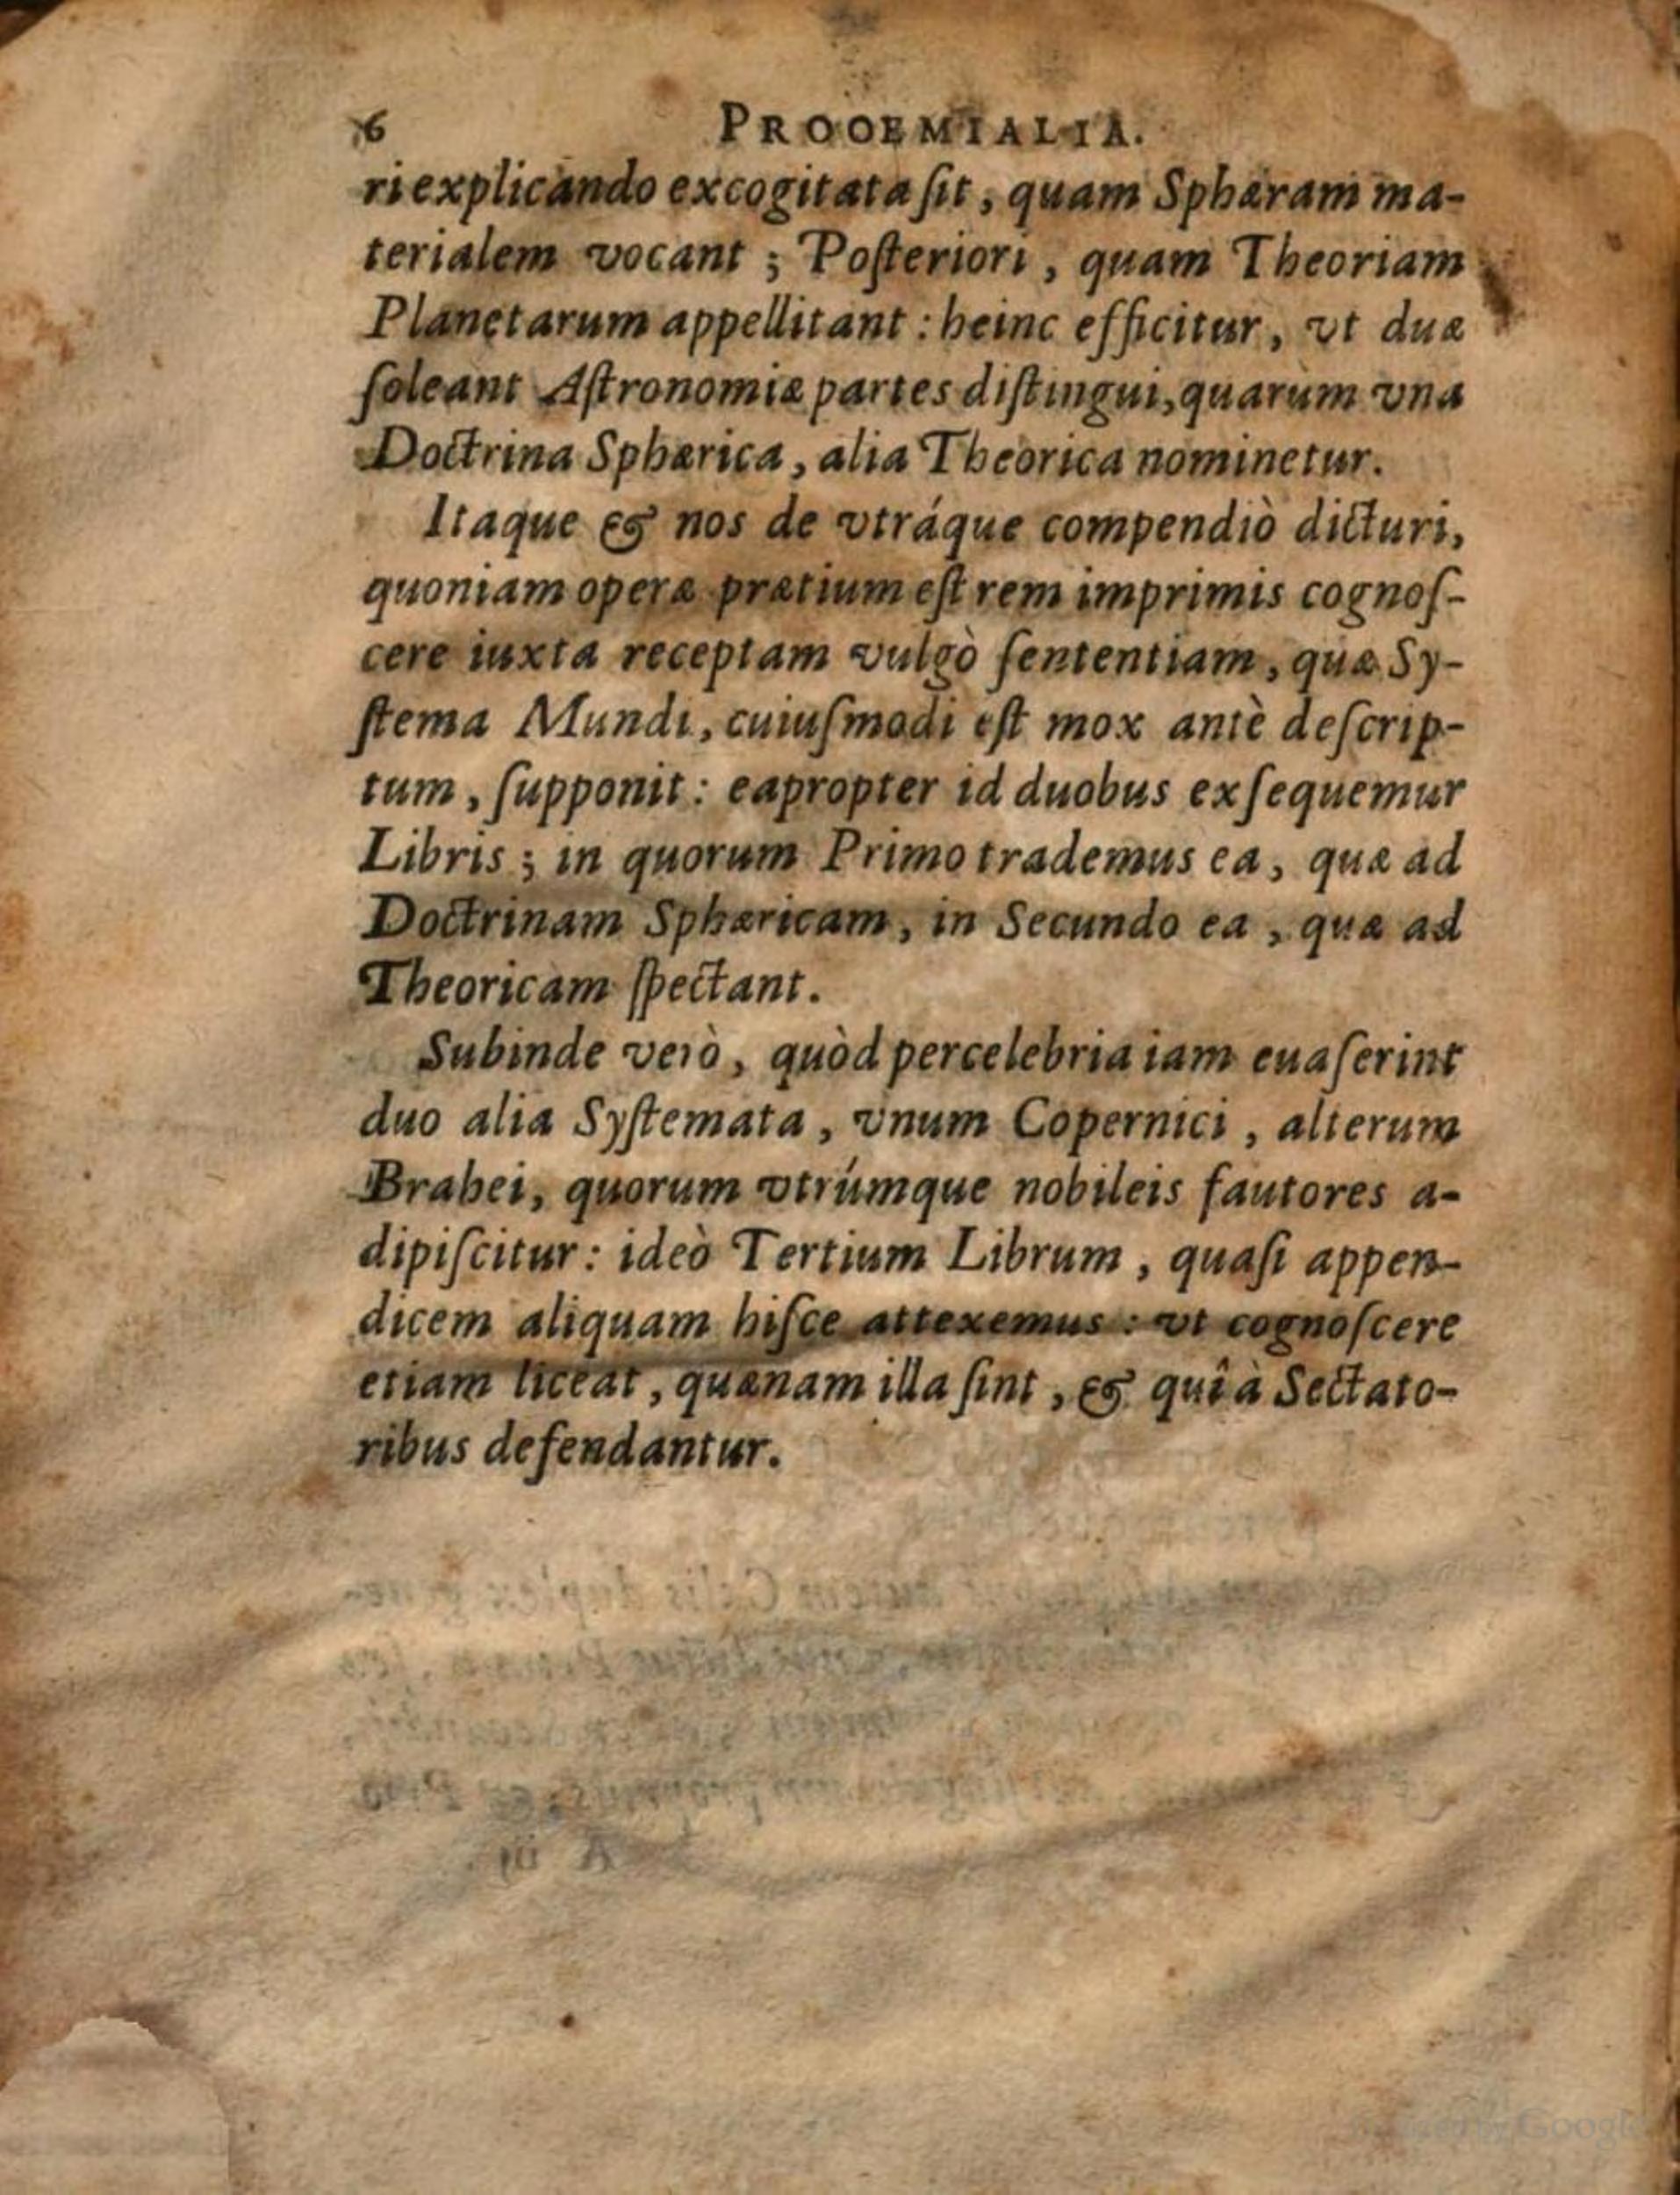 6 PROOEMIALIA.
ri explicando excogitata ſit, quam Sphæram ma-
terialem vocant; Poſteriori, quam Theoriam
Planetarum appellitant: heinc efficitur, vt duæ
ſoleant Aſtronomiæ partes diſtingui, quarum vna
Doctrina Sphærica, alia Theorica nominetur.
Itaque & nos de vtráque compendiò dicturi,
quoniam operæ prætium eſt rem imprimis cognoſ-
cere iuxta receptam vulgò ſententiam, quæ Sy-
ſtema Mundi, cuiuſmodi eſt mox antè deſcrip-
tum, ſupponit: eapropter id duobus exſequemur
Libris; in quorum Primo trademus ea, quæ ad
Doctrinam Sphæricam, in Secundo ea, quæ ad
Theoricam ſpectant.
Subinde verò, quòd percelebria iam euaſerint
duo alia Syſtemata, vnum Copernici, alterum
Brahei, quorum vtrúmque nobileis fautores a-
dipiſcitur: ideò Tertium Librum, quaſi appen-
dicem aliquam hiſce attexemus: vt cognoſcere
etiam liceat, quænam illa ſint, & quî à Sectato-
ribus defendantur.
Google